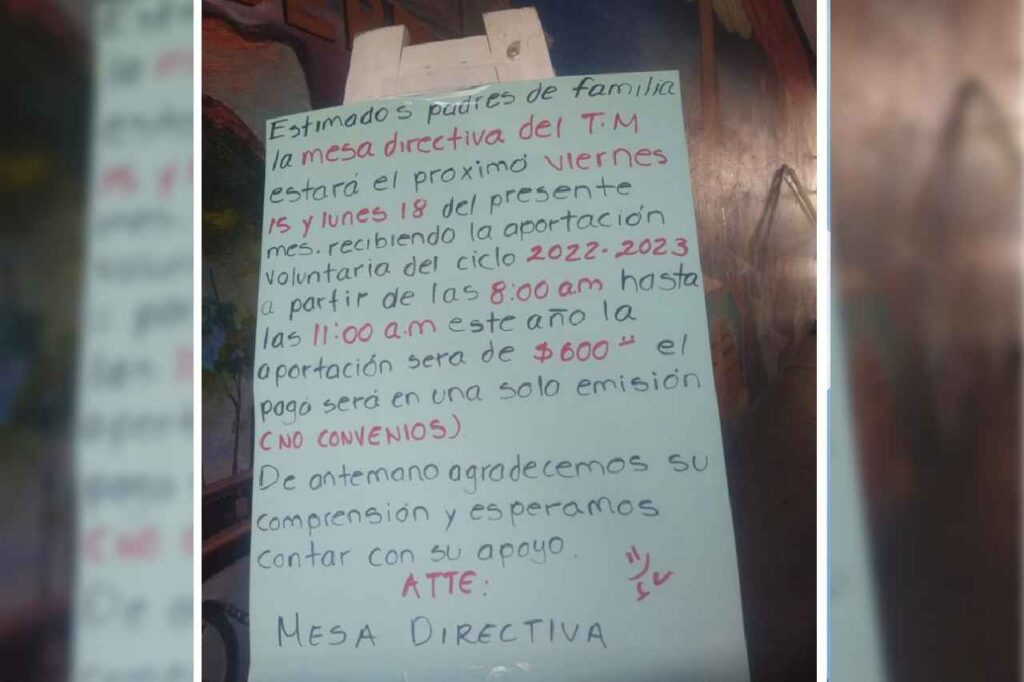 Estimados padres de familia
la mesa directiva del T.M
estará el proximo viernes
15 y lunes 18 del presente
mes. recibiendo la aportación
voluntaria del ciclo 2022-2023
a partir de las 8:00 am hasta
las 11:00 a.m este año la
aportación sera de $600 el
pago será en una sola emisión
(NO CONVENIOS)
De antemano agradecemos su
comprensión y esperamos
contar con su apoyo.
ATTE:
MESA DIRECTIVA